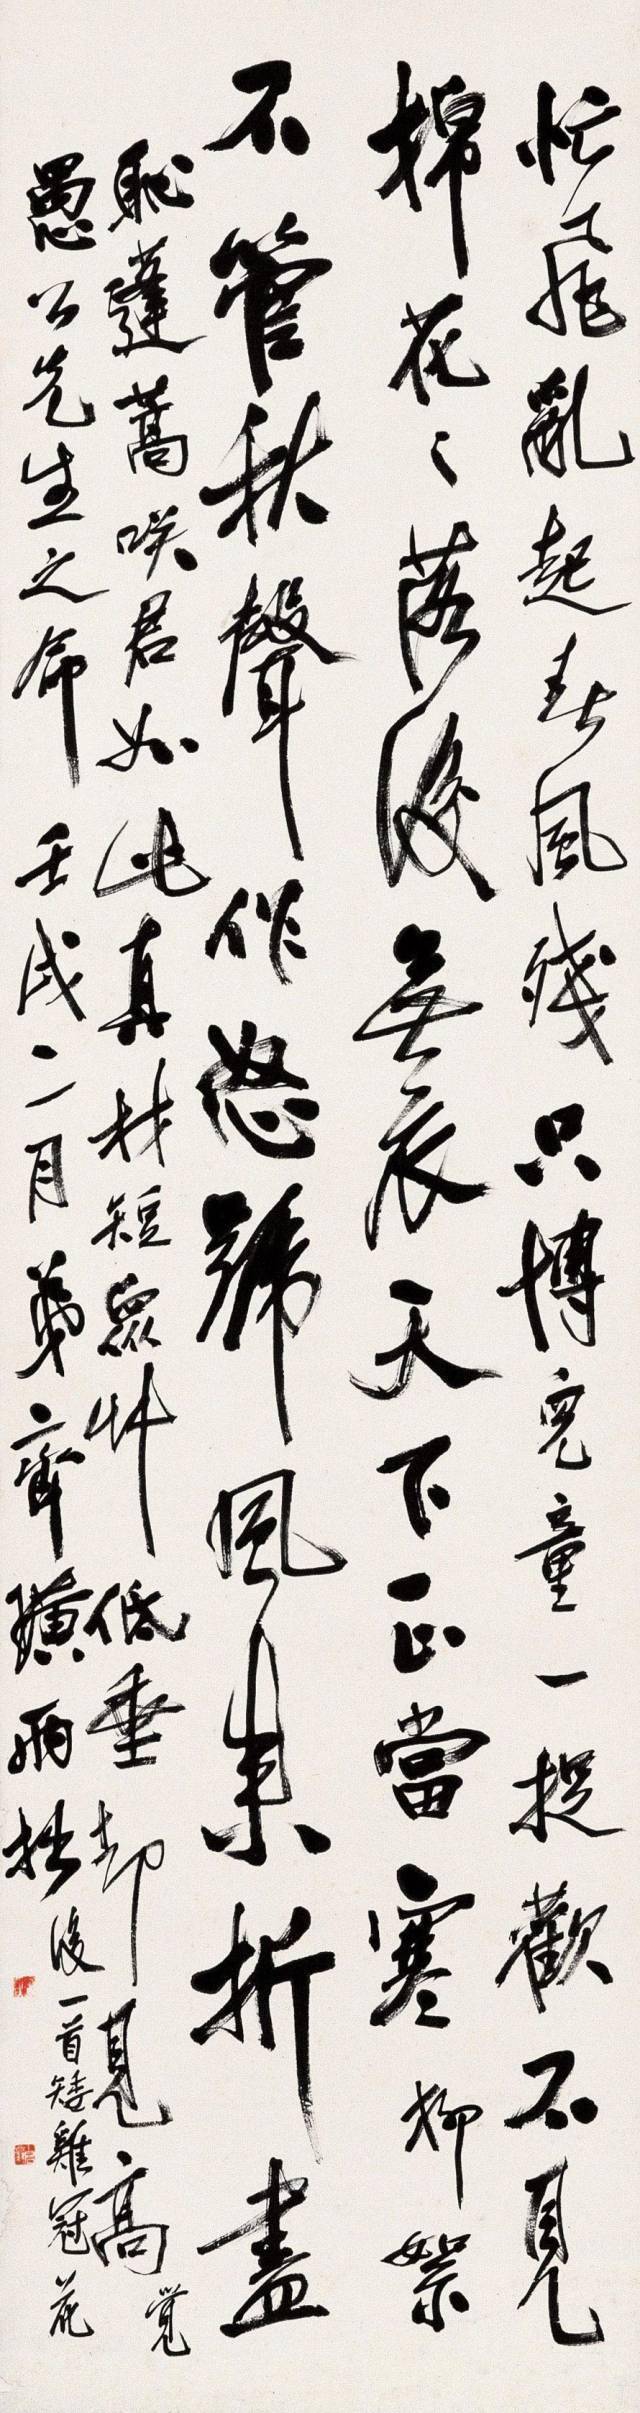 忙飛亂起春風殘只博兒童一捉歡不見
棉花花落後無衣天下正當寒柳絮
不管秋聲作怒號風來折盡
恥蓬蒿咲君如此真材短眾艸低垂却見高覺
愚公先生之命壬戌二月弟齊璜兩拙
後一首矮雞冠花